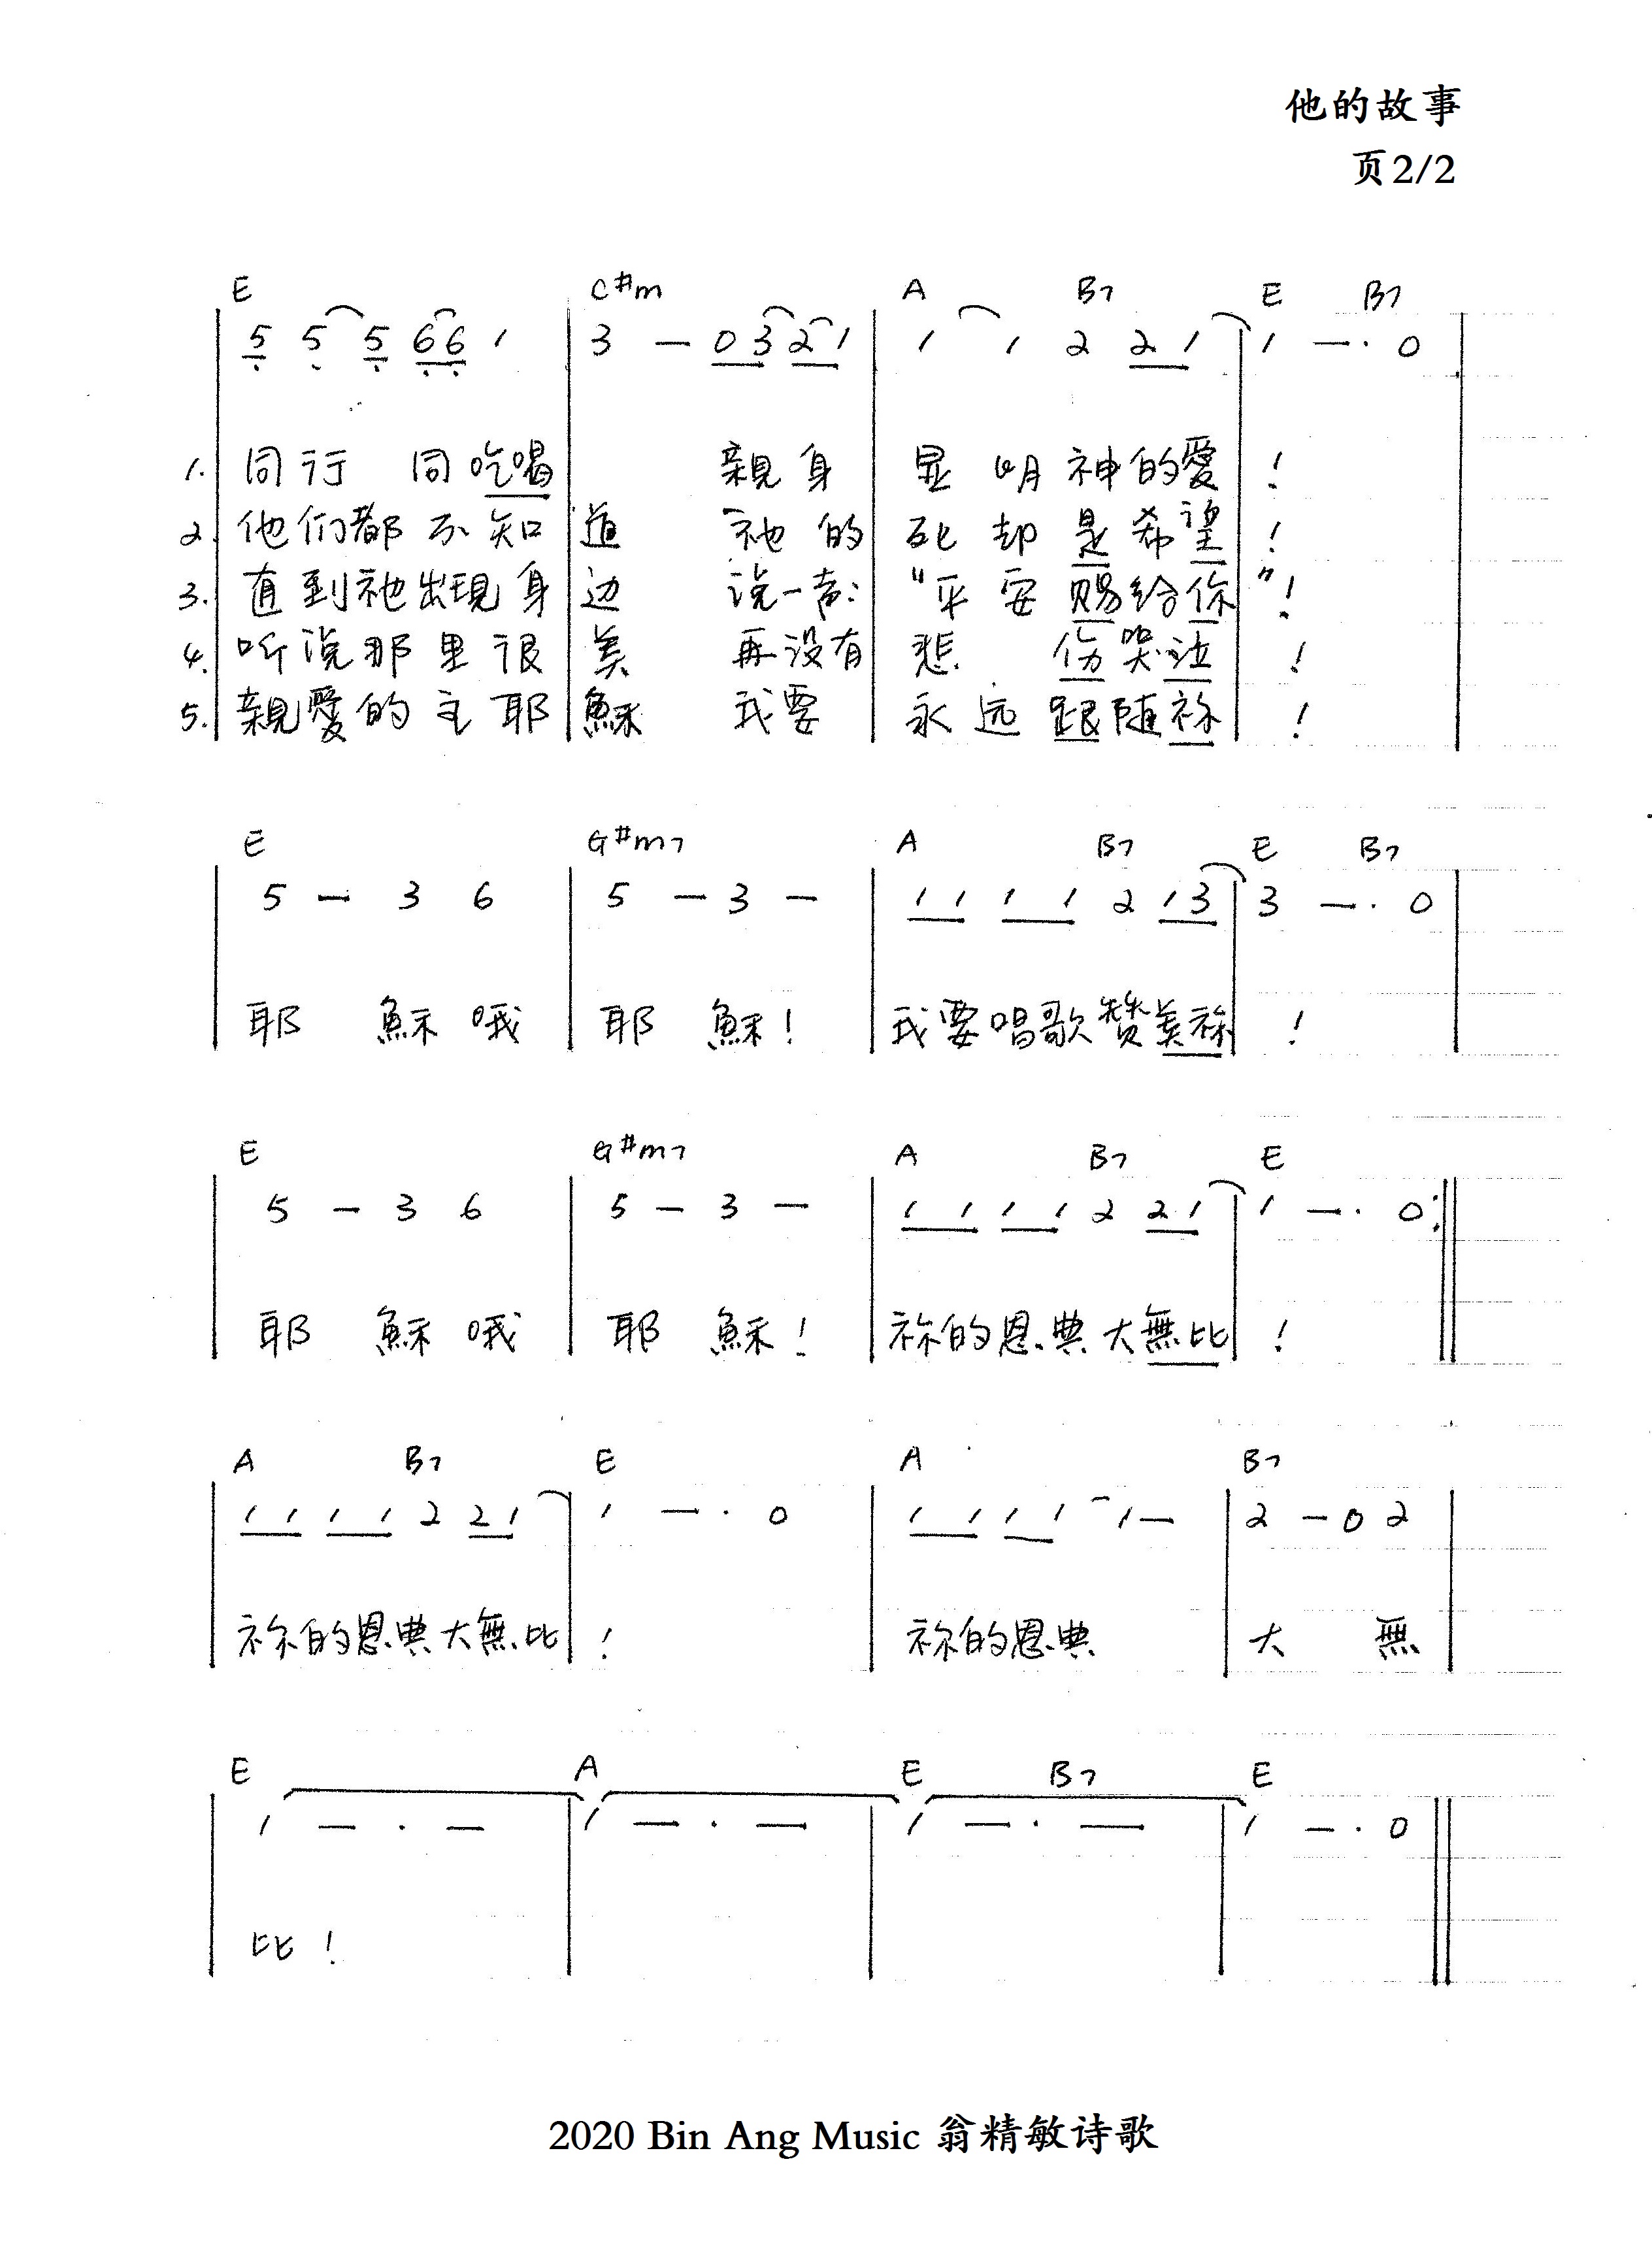 他的故事
页2/2
E C#m A B7 E B7
5 5 5 6 6 1 | 3 — 0 3 2 1 | 1 1 2 2 1 | 1 —· 0 |
1. 同行 同吃喝 親身 显明神的愛!
2. 他们都不知道 祂的死却是希望!
3. 直到祂出現身边 说一声:"平安赐给你"!
4. 听说那里很美 再没有悲伤哭泣!
5. 親愛的主耶穌 我要永远跟随祢!
E G#m7 A B7 E B7
5 — 3 6 | 5 — 3 — | 1 1 1 1 2 1 3 | 3 —· 0 |
耶 穌哦 耶 穌! 我要唱歌赞美祢!
E G#m7 A B7 E
5 — 3 6 | 5 — 3 — | 1 1 1 1 2 2 1 | 1 —· 0 :||
耶 穌哦 耶 穌! 祢的恩典大無比!
A B7 E A B7
1 1 1 1 2 2 1 | 1 —· 0 | 1 1 1 1 1 — | 2 — 0 2 |
祢的恩典大無比! 祢的恩典 大 無
E A E B7 E
1 —· — | 1 —· — | 1 —· — | 1 —· 0 ||
比!
2020 Bin Ang Music 翁精敏诗歌